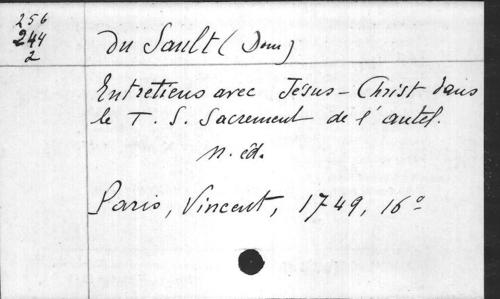 256
244
2
Du Sault (Dom)
Entretiens avec Jésus-Christ dans
le T. S. Sacrement de l'autel.
n. éd.
Paris, Vincent, 1749, 16º